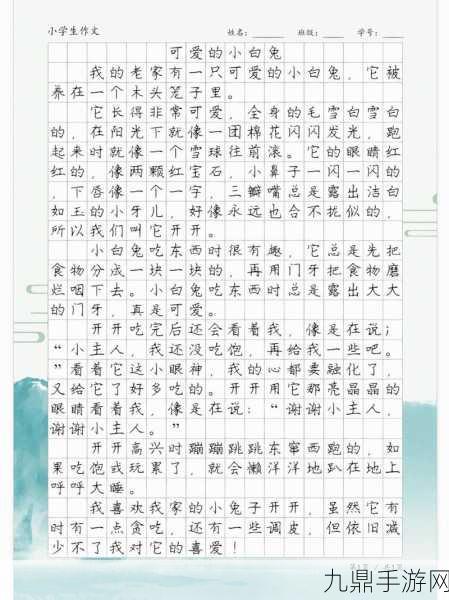 小学生作文 姓名：______ 班级：______ 学号：______
可爱的小白兔
我的老家有一只可爱的小白兔，它被
养在一个木头笼子里。
它长得非常可爱，全身的毛雪白雪白
的，在阳光下就像一团棉花闪闪发光，跑
起来时就像一个雪球往前滚。它的眼睛红
红的，像两颗红宝石，小鼻子一闪一闪的
，下唇像一个一字，三瓣嘴总是露出洁白
如玉的小牙儿，好像永远也合不拢似的，
所以我们叫它开开。
小白兔吃东西时很有趣，它总是先把
食物分成一块一块的，再用门牙把食物磨
烂咽下去。小白兔吃东西时总是露出大大
的门牙，真是可爱。
开开吃完后还会看着我，像是在说；
“小主人，我还没吃饱，再给我一些吧。
”看着它这小眼神，我的心都要融化了，
又给它了好多吃的。开开用它那亮晶晶的
眼睛看着我，像是在说：“谢谢小主人，
谢谢小主人。”
开开高兴时蹦蹦跳跳东窜西跑的，如
果吃饱或玩累了，就会懒洋洋地趴在地上
呼呼大睡。
我喜欢我家的小兔子开开，虽然它有
时有一点贪吃，还有一些调皮，但依旧减
少不了我对它的喜爱！
第1页 / 共1页
九鼎手游网